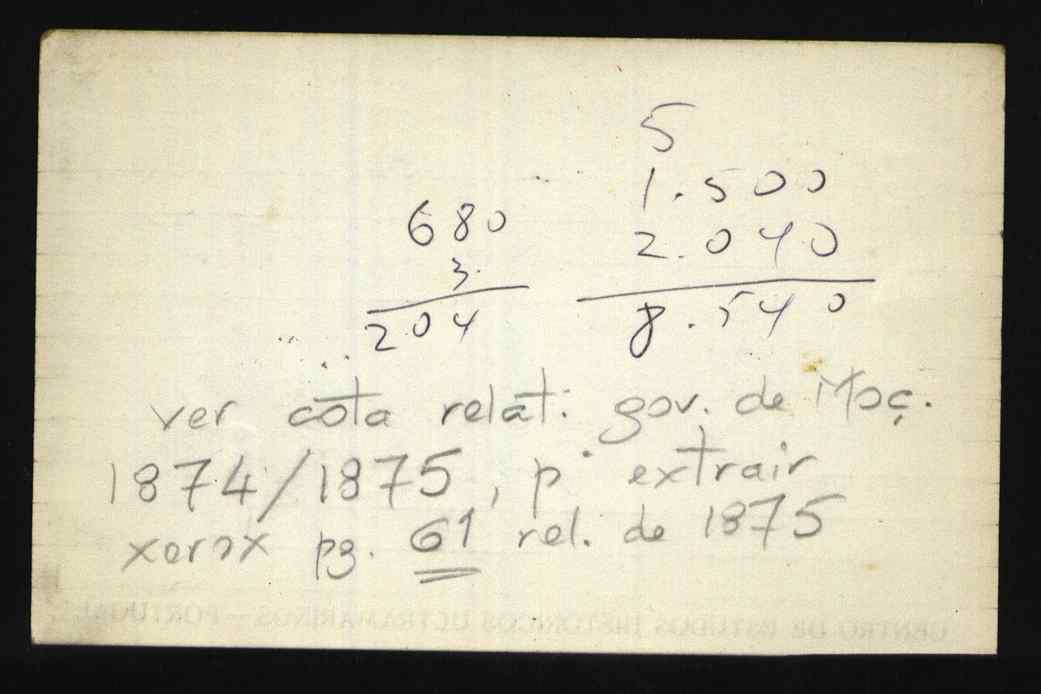 5
1.500
680
2.040
3.
204
8.540
ver cota relat. gov. de Moç.
1874/1875, pº extrair
xerox pg. 61 rel. de 1875
CENTRO DE ESTUDOS HISTÓRICOS ULTRAMARINOS – PORTUGAL